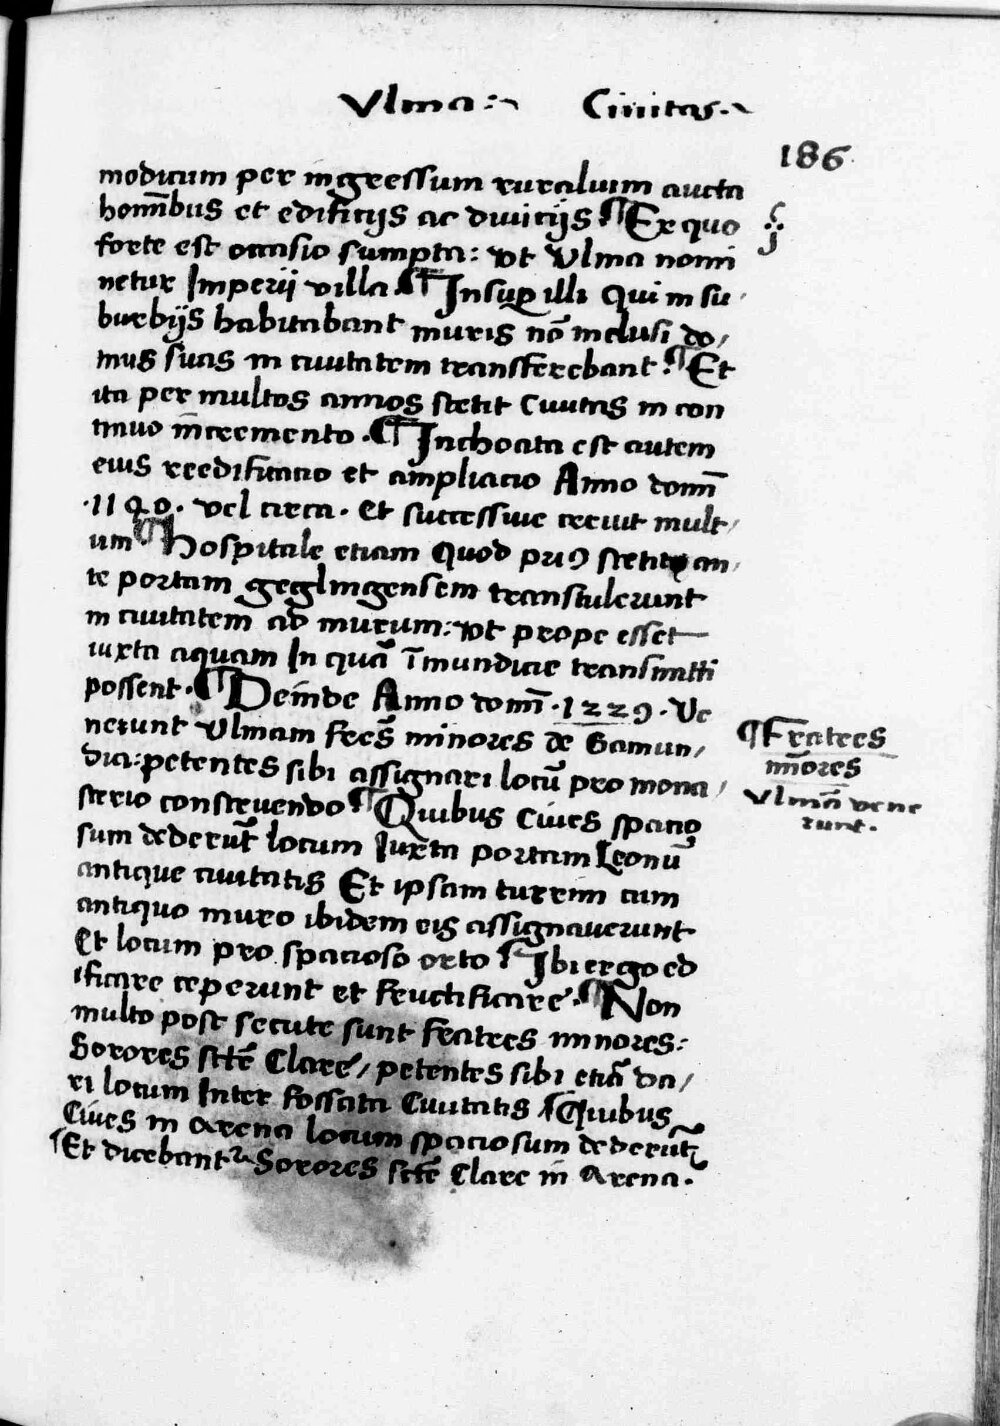 Vlma :~ Ciuitas.~
186
modicum per ingressum ruralium aucta
hominibus et edificijs ac diuicijs. ¶ Ex quo
forte est occasio sumpta: vt Vlma nomi
netur Imperij villa. ¶ Insuper illi Qui in su
burbijs habitabant muris nō inclusi do,
mus suas in ciuitatem transferebant. ¶ Et
ita per multos annos stetit Ciuitas in con
tinuo incremento. ¶ Inchoata est autem
eius reedificatio et ampliacio Anno domī
.1140. vel circa. Et successiue creuit mult,
um. ¶ Hospitale etiam Quod priꝯ stetit an,
te portam geglingensem transtulerunt
in ciuitatem ad murum: vt prope esset
iuxta aquam In quā īmundicie transmitti
possent. ¶ Deinde Anno domī .1229. Ve
nerunt Vlmam frēs minores de Gamun,
dia: petentes sibi assignari locū pro mona,
sterio construendo. ¶ Quibus Ciues spacio
sum dederūt locum Iuxta portam Leonū
antique ciuitatis Et ipsam turrim cum
antiquo muro ibidem eis assignauerunt
Et locum pro spacioso orto. ¶ Ibi ergo ed
ificare ceperunt et fructificare. ¶ Non
multo post secute sunt fratres minores:
Sorores sctē Clare, petentes sibi etiā da,
ri locum Inter fossata Ciuitatis ¶ Quibus
Ciues in arena locum spaciosum dederūt
¶ Et dicebant͛ Sorores sctē Clare in Arena.
¶ Fratres
minores
Vlmā vene
runt.